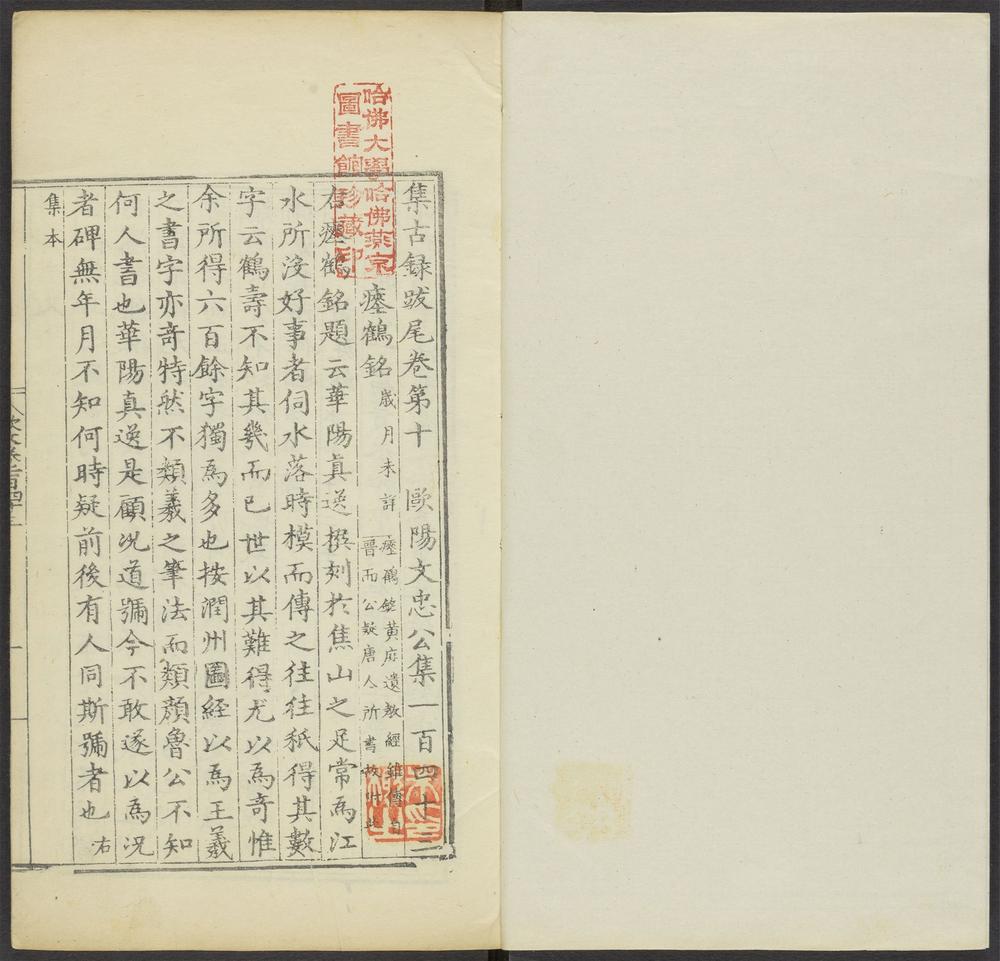 集古録跋尾卷第十　歐陽文忠公集一百四十三
瘞鶴銘歲月未詳　瘞鶴銘黃庭遺教經雖傳自
晉而公疑唐人所書故附此
右瘞鶴銘題云華陽真逸撰刻於焦山之足常為江
水所沒好事者伺水落時模而傳之往往秖得其數
字云鶴壽不知其幾而已世以其難得尤以為奇惟
余所得六百餘字獨為多也按潤州圖經以為王羲
之書字亦奇特然不類羲之筆法而類顏魯公不知
何人書也華陽真逸是顧況道號今不敢遂以為況
者碑無年月不知何時疑前後有人同斯號者也　右
集本
哈佛大學哈佛燕京
圖書館珍藏印